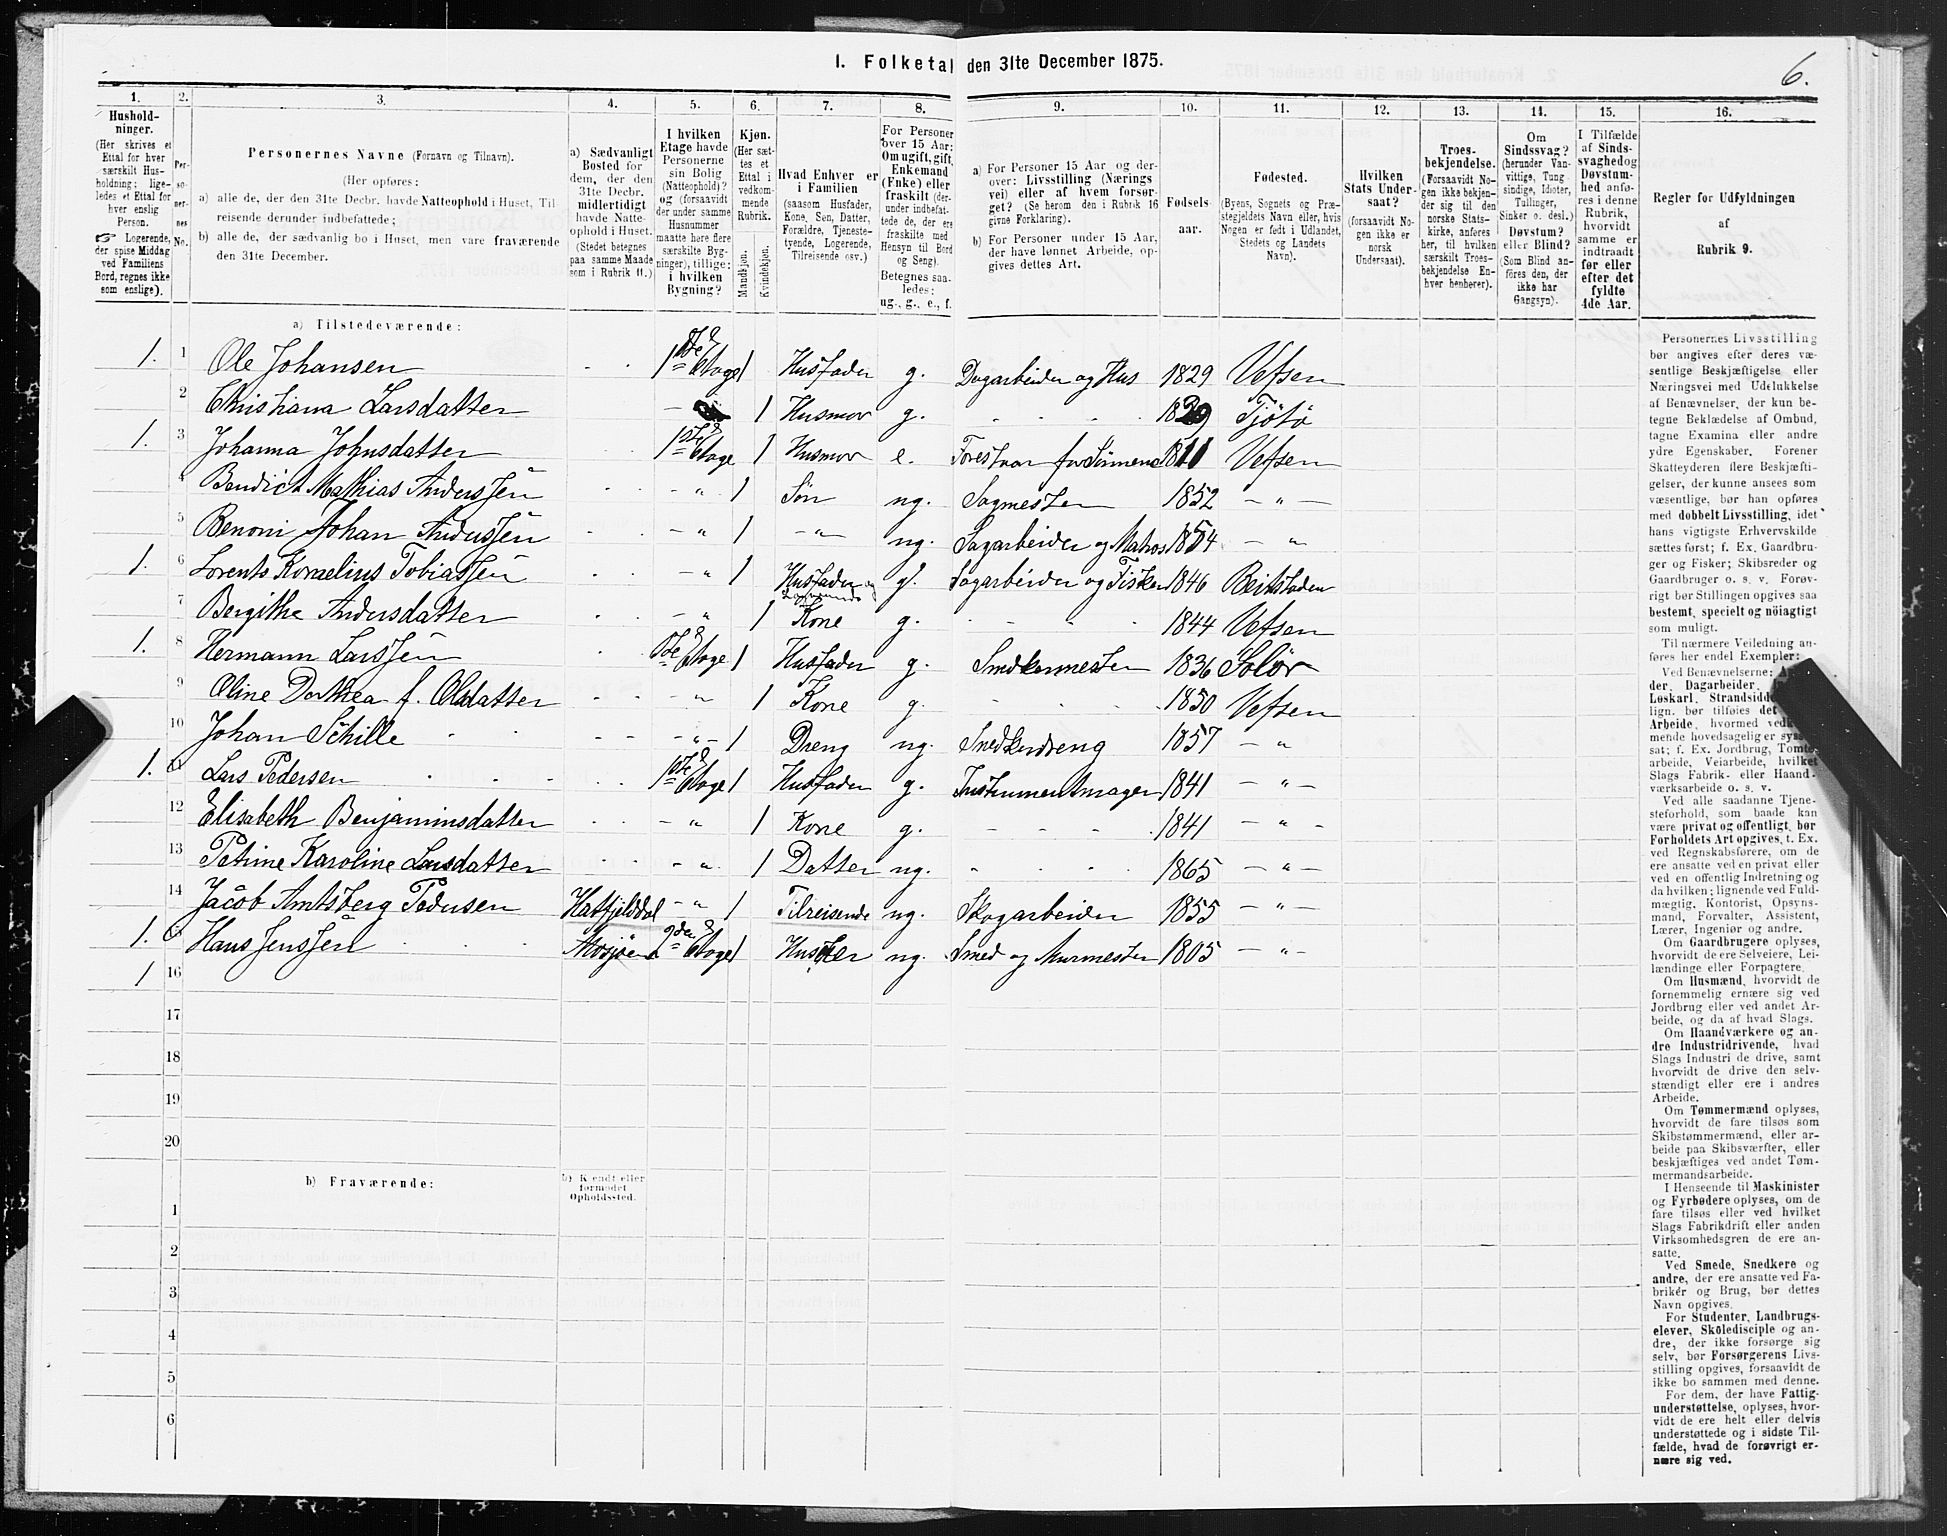 I. Folketal den 31te December 1875.
6.
1.
Hushold-
ninger.
(Her skrives et
Ettal for hver
særskilt Hus-
holdning; lige-
ledes et Ettal for
hver enslig
Person.
☞ Logerende,
der spise Middag
ved Familiens
Bord, regnes ikke
som enslige).
2.
Per-
so-
ner-
nes
No.
3.
Personernes Navne (Fornavn og Tilnavn).
(Her opføres:
a) alle de, der den 31te Decbr. havde Natteophold i Huset, Til-
reisende derunder indbefattede;
b) alle de, der sædvanlig bo i Huset, men vare fraværende
den 31te December.
4.
a) Sædvanligt
Bosted for
dem, der den
31te Decbr.
midlertidigt
havde Natte-
ophold i Huset.
(Stedet betegnes
paa samme Maade
som i Rubrik 11.)
5.
I hvilken
Etage havde
Personerne
sin Bolig
(Natteophold)?
og (forsaavidt
der under samme
Husnummer
maatte høre flere
særskilte Byg-
ninger), tillige:
i hvilken
Bygning?
6.
Kjøn.
(Her sæt-
tes et
Ettal i
vedkom-
mende
Rubrik.
Mandkjøn.
Kvindekjøn.
7.
Hvad Enhver er
i Familien
(saasom Husfader,
Kone, Søn, Datter,
Forældre, Tjeneste-
tyende, Logerende,
Tilreisende osv.)
8.
For Personer
over 15 Aar:
Om ugift, gift,
Enkemand
(Enke) eller
fraskilt (der-
under indbefat-
tede de, der ere
fraskilte med
Hensyn til Bord
og Seng).
Betegnes saa-
ledes:
ug., g., e., f.
9.
a) For Personer 15 Aar og der-
over: Livsstilling (Nærings
vei) eller af hvem forsør-
get? (Se herom den i Rubrik 16
givne Forklaring).
b) For Personer under 15 Aar,
der have lønnet Arbeide, op-
gives dettes Art.
10.
Fødsels-
aar.
11.
Fødested.
(Byens, Sognets og Præ-
stegjeldets Navn eller, hvis
Nogen er født i Udlandet,
Stedets og Landets
Navn).
12.
Hvilken
Stats Under-
saat?
(forsaavidt No-
gen ikke er
norsk
Undersaat).
13.
Troes-
bekjendelse.
(Forsaavidt No-
gen ikke bekjen-
der sig til den
norske Stats-
kirke, anføres
her, til hvilken
særskilt Troes-
bekjendelse En-
hver henhører).
14.
Om
Sindssvag?
(herunder Van-
vittige, Tung
sindige, Idioter,
Tullinger,
Sinker o. desl.)
Døvstum?
eller Blind?
(Som Blind an-
føres den, der
ikke har
Gangsyn).
15.
I Tilfælde
af Sinds-
svaghed og
Døvstum-
hed anfø-
res i denne
Rubrik,
hvorvidt
samme er
indtraadt
før eller
efter det
fyldte
4de Aar.
16.
Regler for Udfyldningen
af
Rubrik 9.
a) Tilstedeværende:
1. 1 Ole Johansen 1ste Etage 1 Husfader g. Dagarbeider og Hus 1829 Vefsen
2 Christiana Larsdatter 1 Husmor g. Tjötö
1. 3 Johanna Johnsdatter 1ste Etage 1 Husmor e. 1811 Vefsen
4 Bendict Mathias Anderssen - " 1 Søn ug. Sagmester 1852 - " -
5 Benoni Johan Anderssen - " 1 - " - ug. Sagarbeider og Matros 1854 - "
1. 6 Lorents Kornelius Tobiassen - " 1 Husfader og Logerende g. Sagarbeider og Fisker 1846 Beitstaden
7 Bergithe Andersdatter - " 1 Kone g. 1844 Vefsen
1. 8 Hermann Larssen 1ste Etage 1 Husfader g. Snedkermester 1836 Solør
9 Oline Dorthea f. Olsdatter - " 1 Kone g. 1850 Vefsen
10 Johan Schille - " - 1 Dreng ug. Snedkerdreng 1857 - "
1. 11 Lars Pedersen 1ste Etage 1 Husfader g. Instrumentmager 1841 - " -
12 Elisabeth Benjaminsdatter - " 1 Kone g. 1841 - " -
13 Petrine Karoline Larsdatter - " 1 Datter ug. 1865 - " -
14 Jacob Amtsberg Pedersen Hatfjelddal - " 1 Tilreisende ug. Skogarbeider 1855 - " -
1. 15 Hans Jenssen Mosjøen 2den Etage 1 ug. Smed og Murmester 1805 - " -
1 16
17
18
19
20
b) Fraværende:
b) Kjendt eller
formodet
Opholdssted.
1
2
3
4
5
6
Personernes Livsstilling
bør angives efter deres væ-
sentlige Beskjæftigelse eller
Næringsvei med Udelukkelse
af Benævnelser, der kun be-
tegne Beklædelse af Ombud,
tagne Examina eller andre
ydre Egenskaber. Forener
Skatteyderen flere Beskjæfti-
gelser, der kunne ansees som
væsentlige, bør han opføres
med dobbelt Livsstilling, idet
hans vigtigste Erhvervskilde
sættes først; f. Ex. Gaardbru-
ger og Fisker; Skibsreder og
Gaardbruger o. s. v. Forøv-
rigt bør Stillingen opgives saa
bestemt, specielt og nöiagtigt
som muligt.
Til nærmere Veiledning an-
føres her endel Exempler:
Ved Benævnelserne:
der, Dagarbeider,
Løskarl, Strandsidd
lign. bør tilføies det
Arbeide, hvormed vedkom-
mende hovedsagelig er syssel-
sat; f. Ex. Jordbrug, Tomte-
arbeide, Veiarbeide, hvilket
Slags Fabrik- eller Haand-
værksarbeide o. s. v.
Ved alle saadanne Tjene-
steforhold, som baade kan
være privat og offentligt, bør
Forholdets Art opgives, t. Ex.
ved Regnskabsførere, om de
ere ansatte ved en privat eller
ved en offentlig Indretning og
da hvilken; lignende ved Fuld-
mægtig, Kontorist, Opsyns-
mand, Forvalter, Assistent,
Lærer, Ingeniør og andre.
Om Gaardbrugere oplyses,
hvorvidt de ere Selveiere, Lei-
lændinge eller Forpagtere.
Om Husmænd, hvorvidt de
fornemmelig ernære sig ved
Jordbrug eller ved andet Ar-
beide, og da af hvad Slags.
Om Haandværkere og an-
dre Industridrivende, hvad
Slags Industri de drive, samt
hvorvidt de drive den selv-
stændigt eller ere i andres
Arbeide.
Om Tømmermænd oplyses,
hvorvidt de fare tilsøs som
Skibstømmermænd, eller ar-
beide paa Skibsværfter, eller
beskjæftiges ved andet Tøm-
mermandsarbeide.
I Henseende til Maskinister
og Fyrbødere oplyses, om de
fare tilsøs eller ved hvilket
Slags Fabrikdrift eller anden
Virksomhedsgren de ere an-
satte.
Ved Smede, Snedkere og
andre, der ere ansatte ved Fa-
briker og Brug, bør dettes
Navn opgives.
For Studenter, Landbrugs-
elever, Skoledisciple og an-
dre, der ikke forsørge sig
selv, bør Forsørgerens Livs-
stilling opgives, forsaavidt de
ikke bo sammen med denne.
For dem, der have Fattig-
understøttelse, oplyses, hvor-
vidt de ere helt eller delvis
understøttede og i sidste Til-
fælde, hvad de forøvrigt er-
nære sig ved.